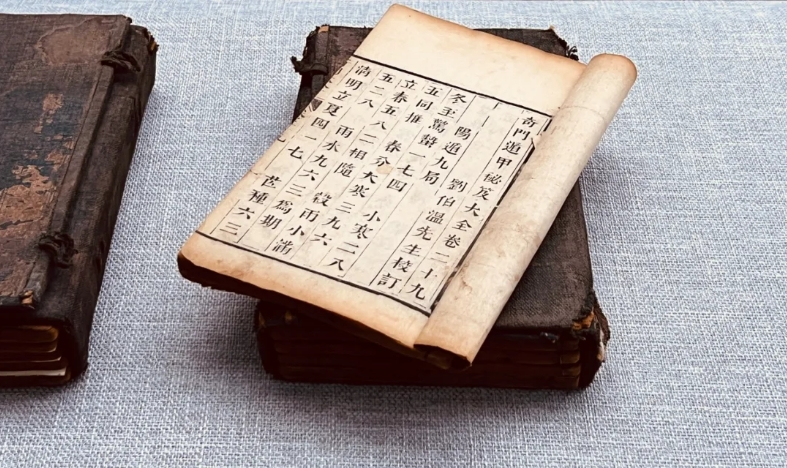 奇門遁甲秘笈大全卷二十九
劉伯溫先生校訂
陽遁九局
冬至驚蟄一七四 小寒二八
五同推 春分大寒三九六
立春五八二相隨 穀雨小滿
五二八 雨水九六三爲期
清明立夏四一七 芒種六三